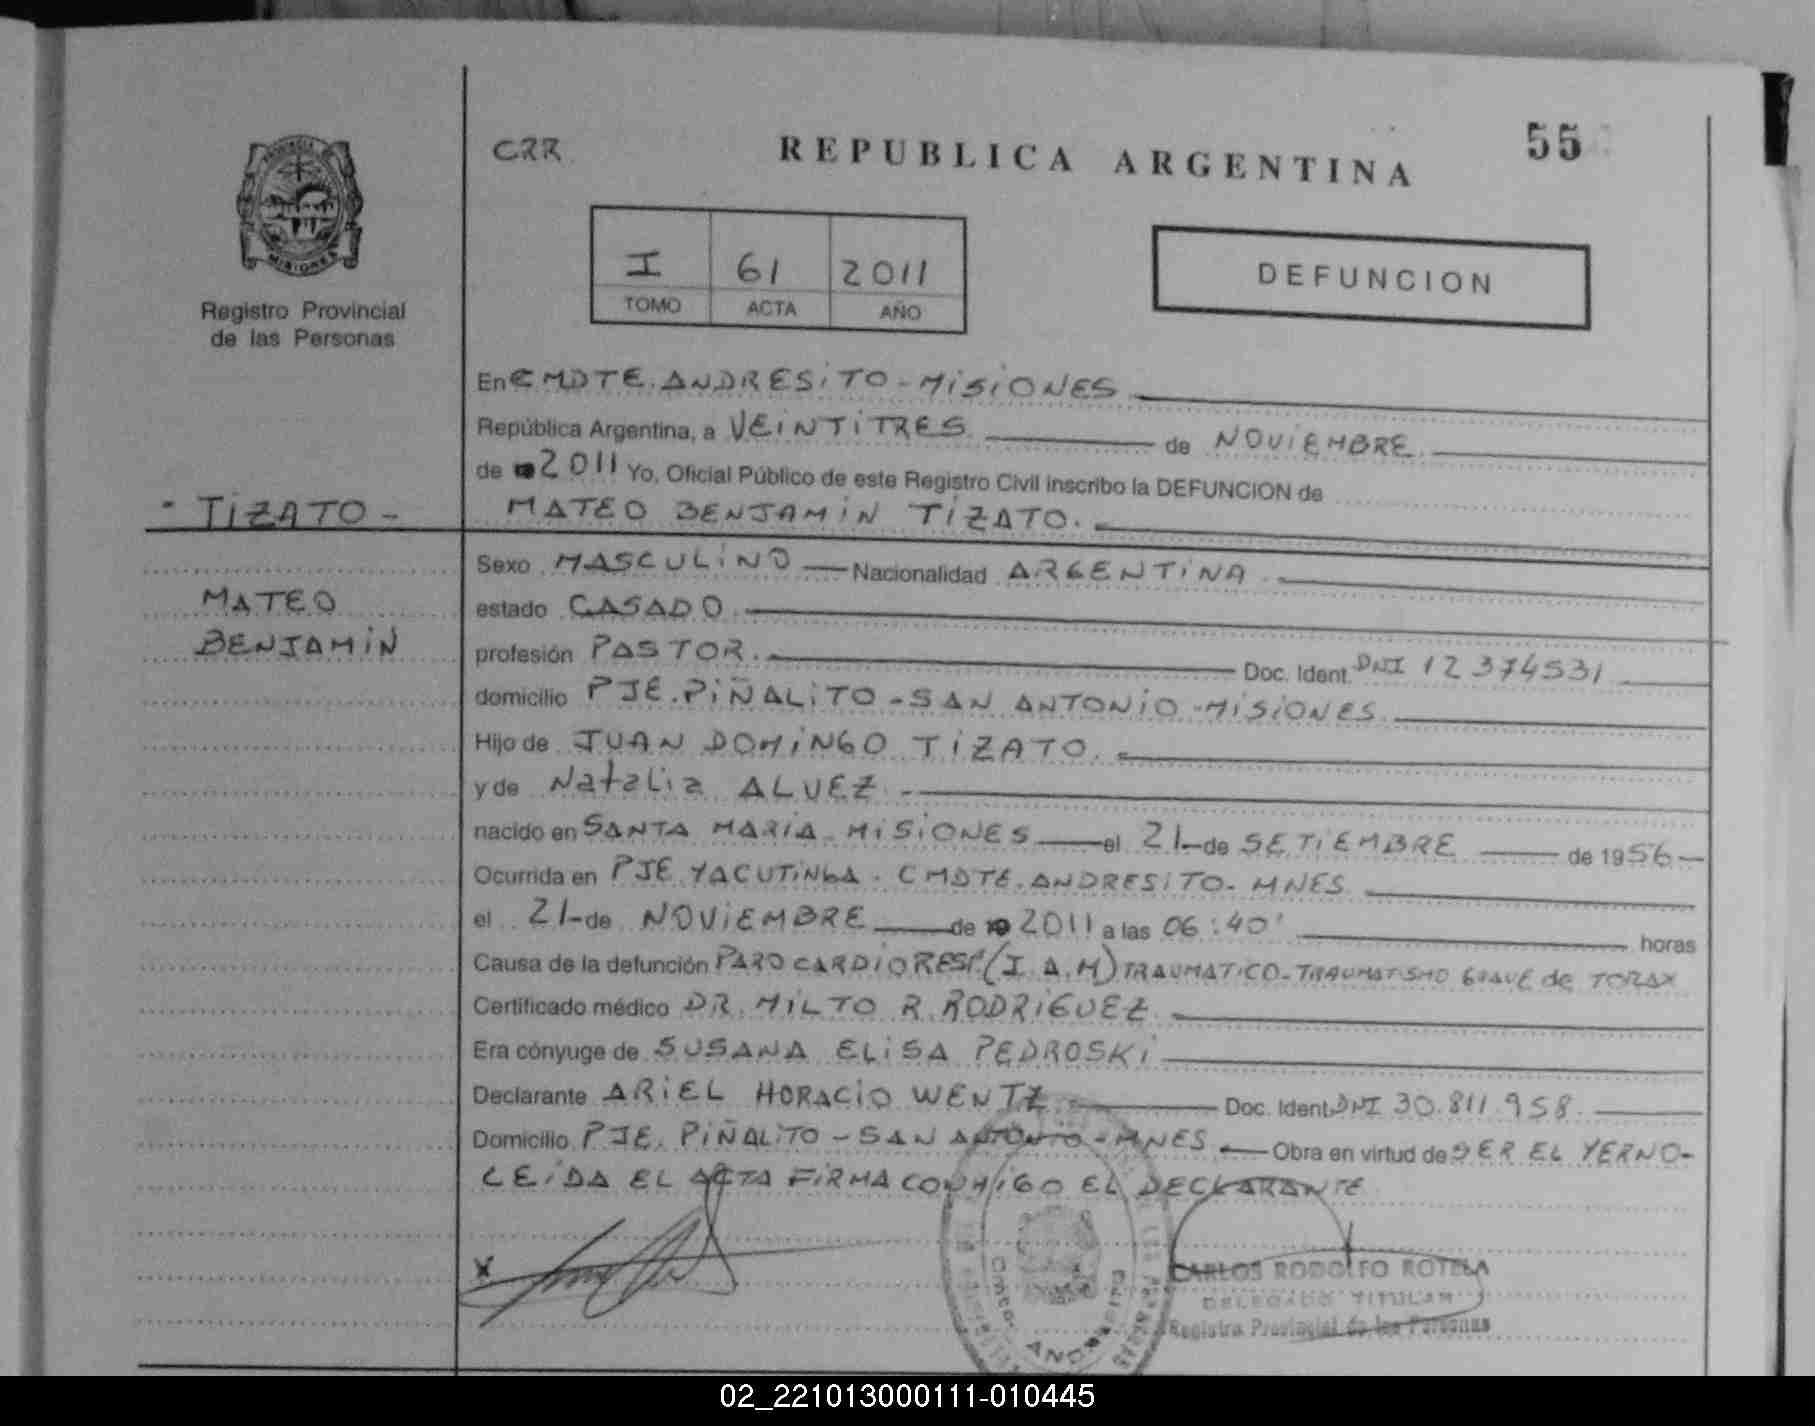 CRR
REPUBLICA ARGENTINA
55
PROVINCIA
MISIONES
Registro Provincial
de las Personas
I 61 2011
TOMO ACTA AÑO
DEFUNCION
En CMDTE. ANDRESITO - MISIONES
República Argentina, a VEINTITRES de NOVIEMBRE
de 2011 Yo, Oficial Público de este Registro Civil inscribo la DEFUNCION de
- TIZATO - MATEO BENJAMIN TIZATO.
Sexo MASCULINO Nacionalidad ARGENTINA
MATEO estado CASADO
BENJAMIN profesión PASTOR. Doc. Ident. DNI 12 374531
domicilio PJE. PIÑALITO - SAN ANTONIO - MISIONES
Hijo de JUAN DOMINGO TIZATO.
y de Natalia ALVEZ
nacido en SANTA MARIA - MISIONES el 21 de SETIEMBRE de 1956
Ocurrida en PJE YACUTINGA. CMDTE. ANDRESITO - MNES
el 21 de NOVIEMBRE de 2011 a las 06:40' horas
Causa de la defunción PARO CARDIORESP. (I.A.M) TRAUMATICO - TRAUMATISMO GRAVE de TORAX
Certificado médico DR. MILTO R. RODRIGUEZ
Era cónyuge de SUSANA ELISA PEDROSKI
Declarante ARIEL HORACIO WENTZ Doc. Ident. DNI 30.811.958
Domicilio PJE. PIÑALITO - SAN ANTONIO - MNES Obra en virtud de SER EL YERNO -
LEIDA EL ACTA FIRMA CONMIGO EL DECLARANTE
X
CARLOS RODOLFO ROTELA
DELEGADO TITULAR
Registro Provincial de las Personas
02_221013000111-010445